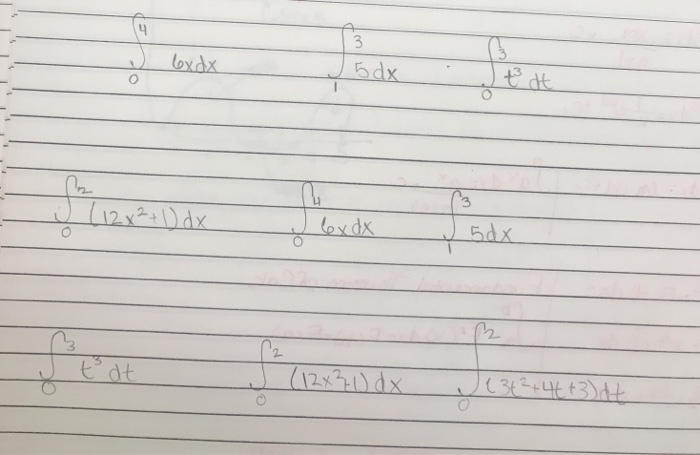 ∫₀⁴ 6x dx ∫₁³ 5 dx ∫₀³ t³ dt
∫₀² (12x²+1) dx ∫₀⁴ 6x dx ∫₁³ 5 dx
∫₀³ t³ dt ∫₀² (12x²+1) dx ∫₀² (3t²+4t+3) dt